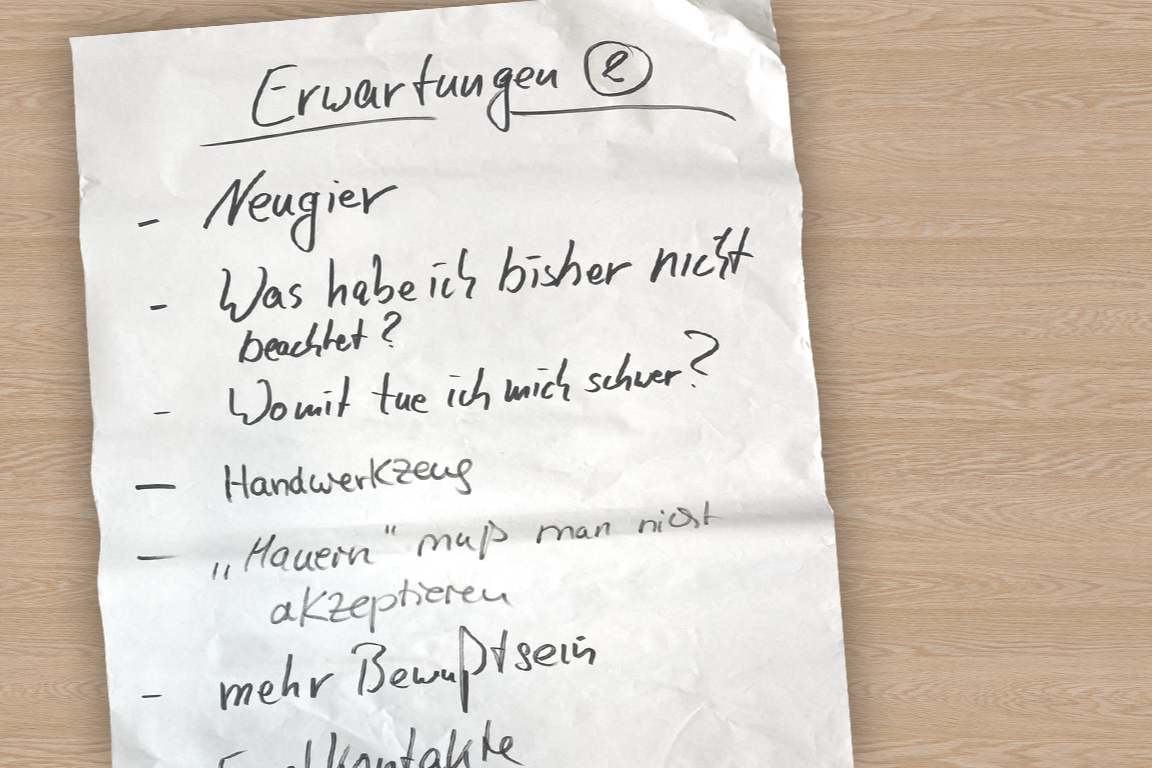 Erwartungen ②
- Neugier
- Was habe ich bisher nicht
beachtet?
- Womit tue ich mich schwer?
- Handwerkzeug
- „Mauern“ muß man nicht
akzeptieren
- mehr Bewußtsein